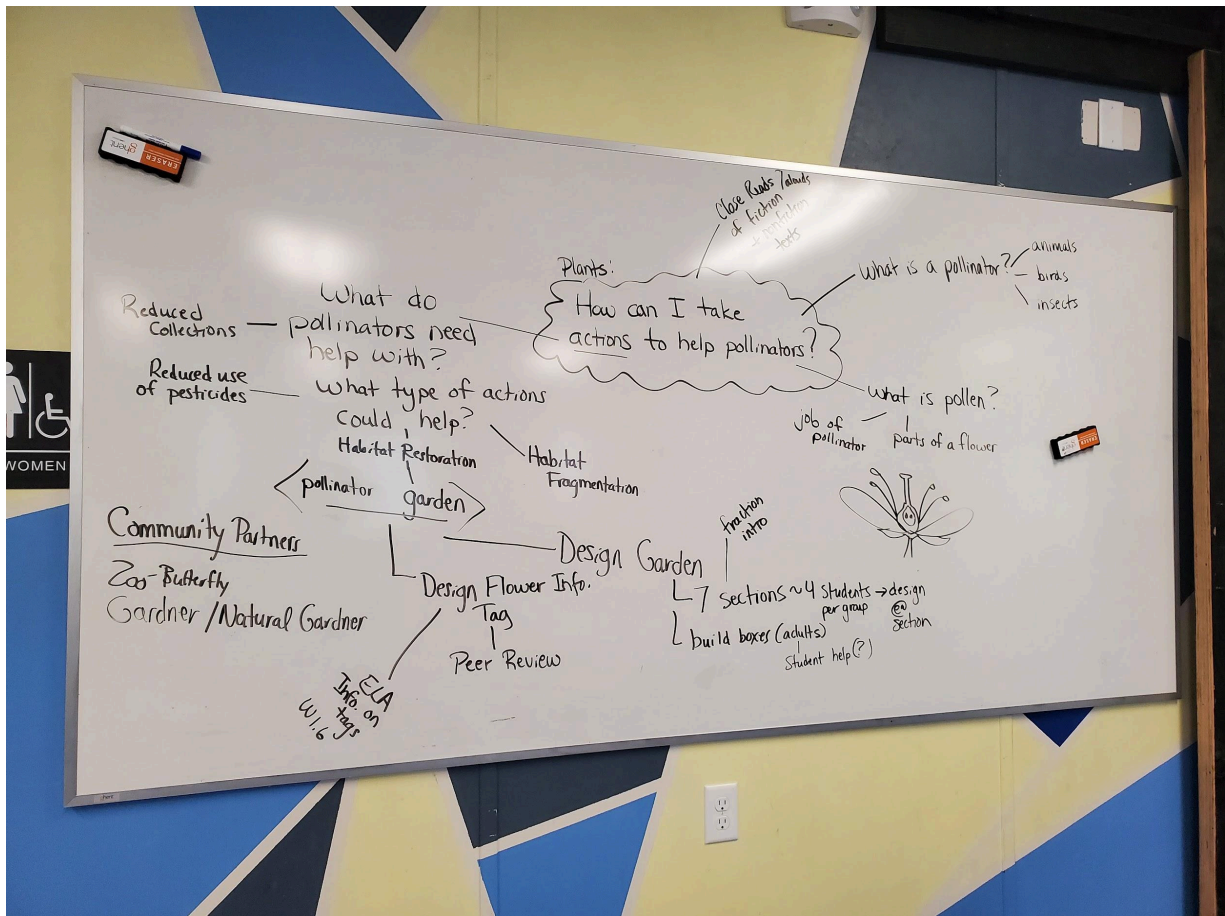 ghent
ERASER
Close Reads / alouds
of fiction
+ nonfiction
texts
Plants:
How can I take
actions to help pollinators?
What is a pollinator?
animals
birds
insects
What is pollen?
job of
pollinator
parts of a flower
ghent
ERASER
What do
pollinators need
help with?
Reduced
Collections
What type of actions
could help?
Reduced use
of pesticides
Habitat Restoration
Habitat
Fragmentation
pollinator garden
WOMEN
Community Partners
Zoo-Butterfly
Gardner / Natural Gardner
Design Flower Info.
Tag
Peer Review
ELA
Info. on
tags
W1.6
Design Garden
fraction
intro
7 sections ~ 4 students → design
per group
@
section
build boxes (adults)
Student help (?)